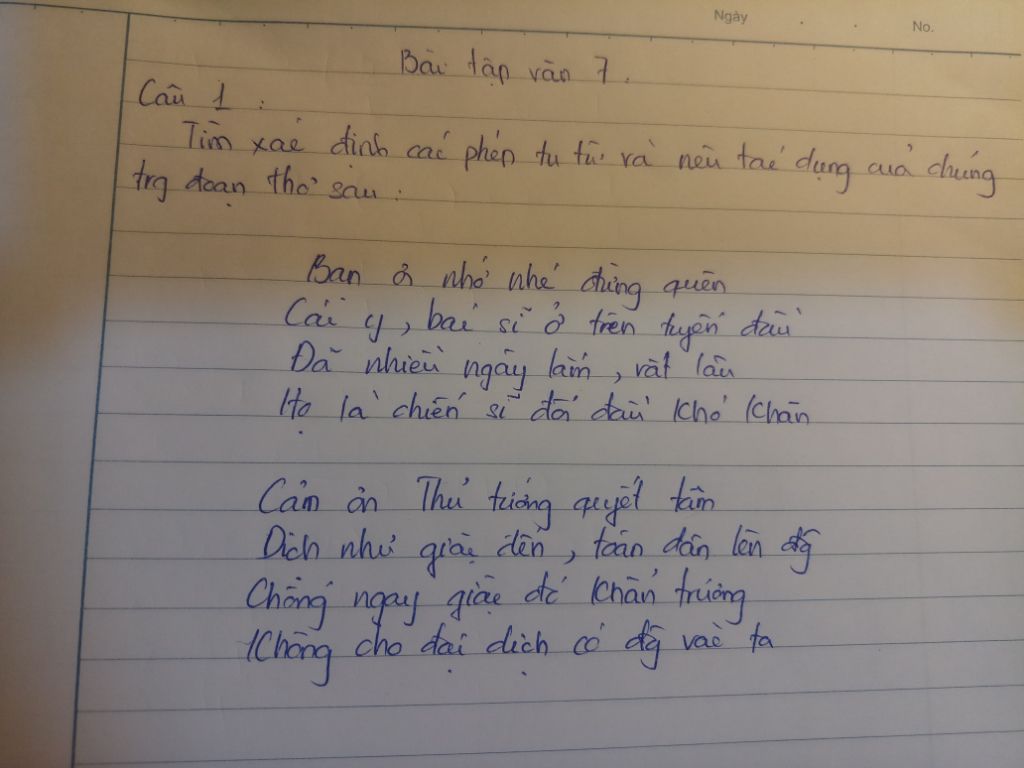 Ngày
No.
Bài tập văn 7.
Câu 1:
Tìm xác định các phép tu từ và nêu tác dụng của chúng
trg đoạn thơ sau:
Bạn ơi nhớ nhé đừng quên
Cái y, bác sĩ ở trên tuyến đầu
Đã nhiều ngày lắm, rất lâu
Họ là chiến sĩ đối đầu khó khăn
Cảm ơn Thủ tướng quyết tâm
Dịch như giặc đến, toàn dân lên đg
Chống ngay giặc đó khẩn trương
Không cho đại dịch có đg vào ta